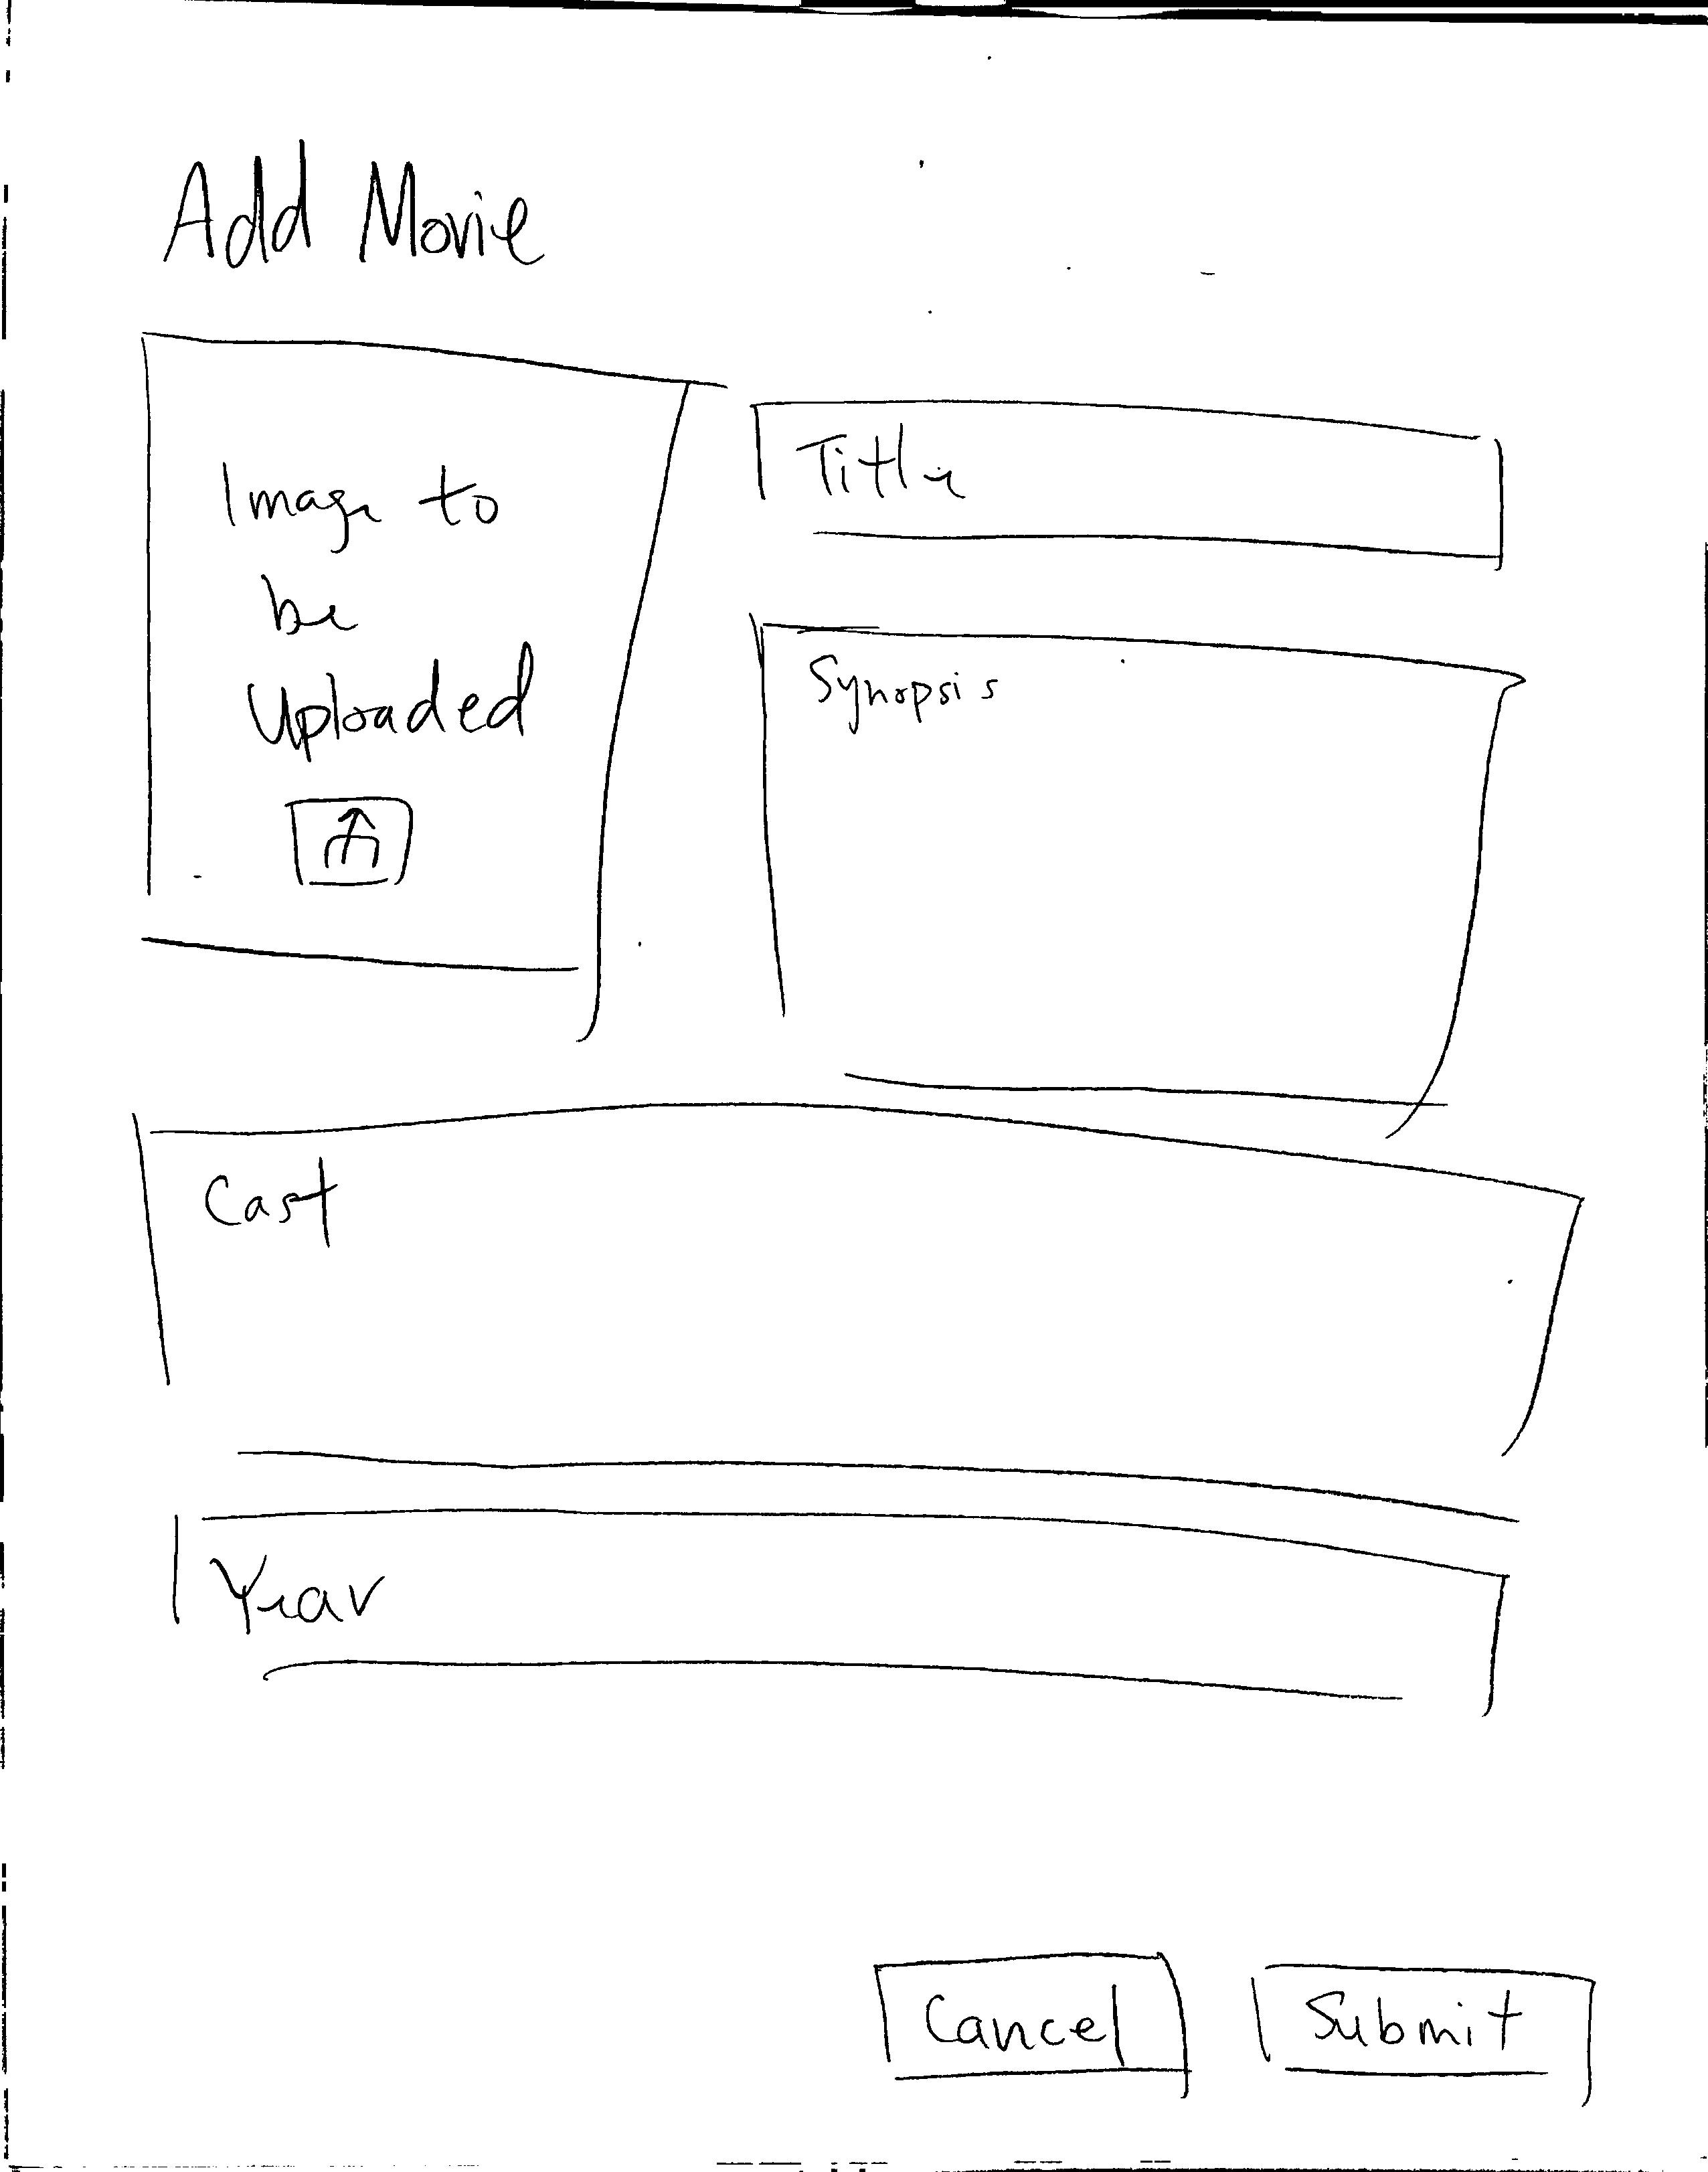 Add Movie
Image to
be
Uploaded
Title
Synopsis
Cast
Year
Cancel
Submit